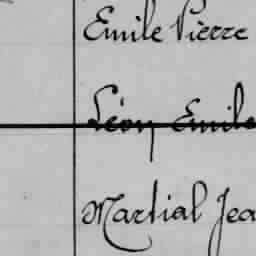 Emile Pierre
Léon Emile
Martial Jea